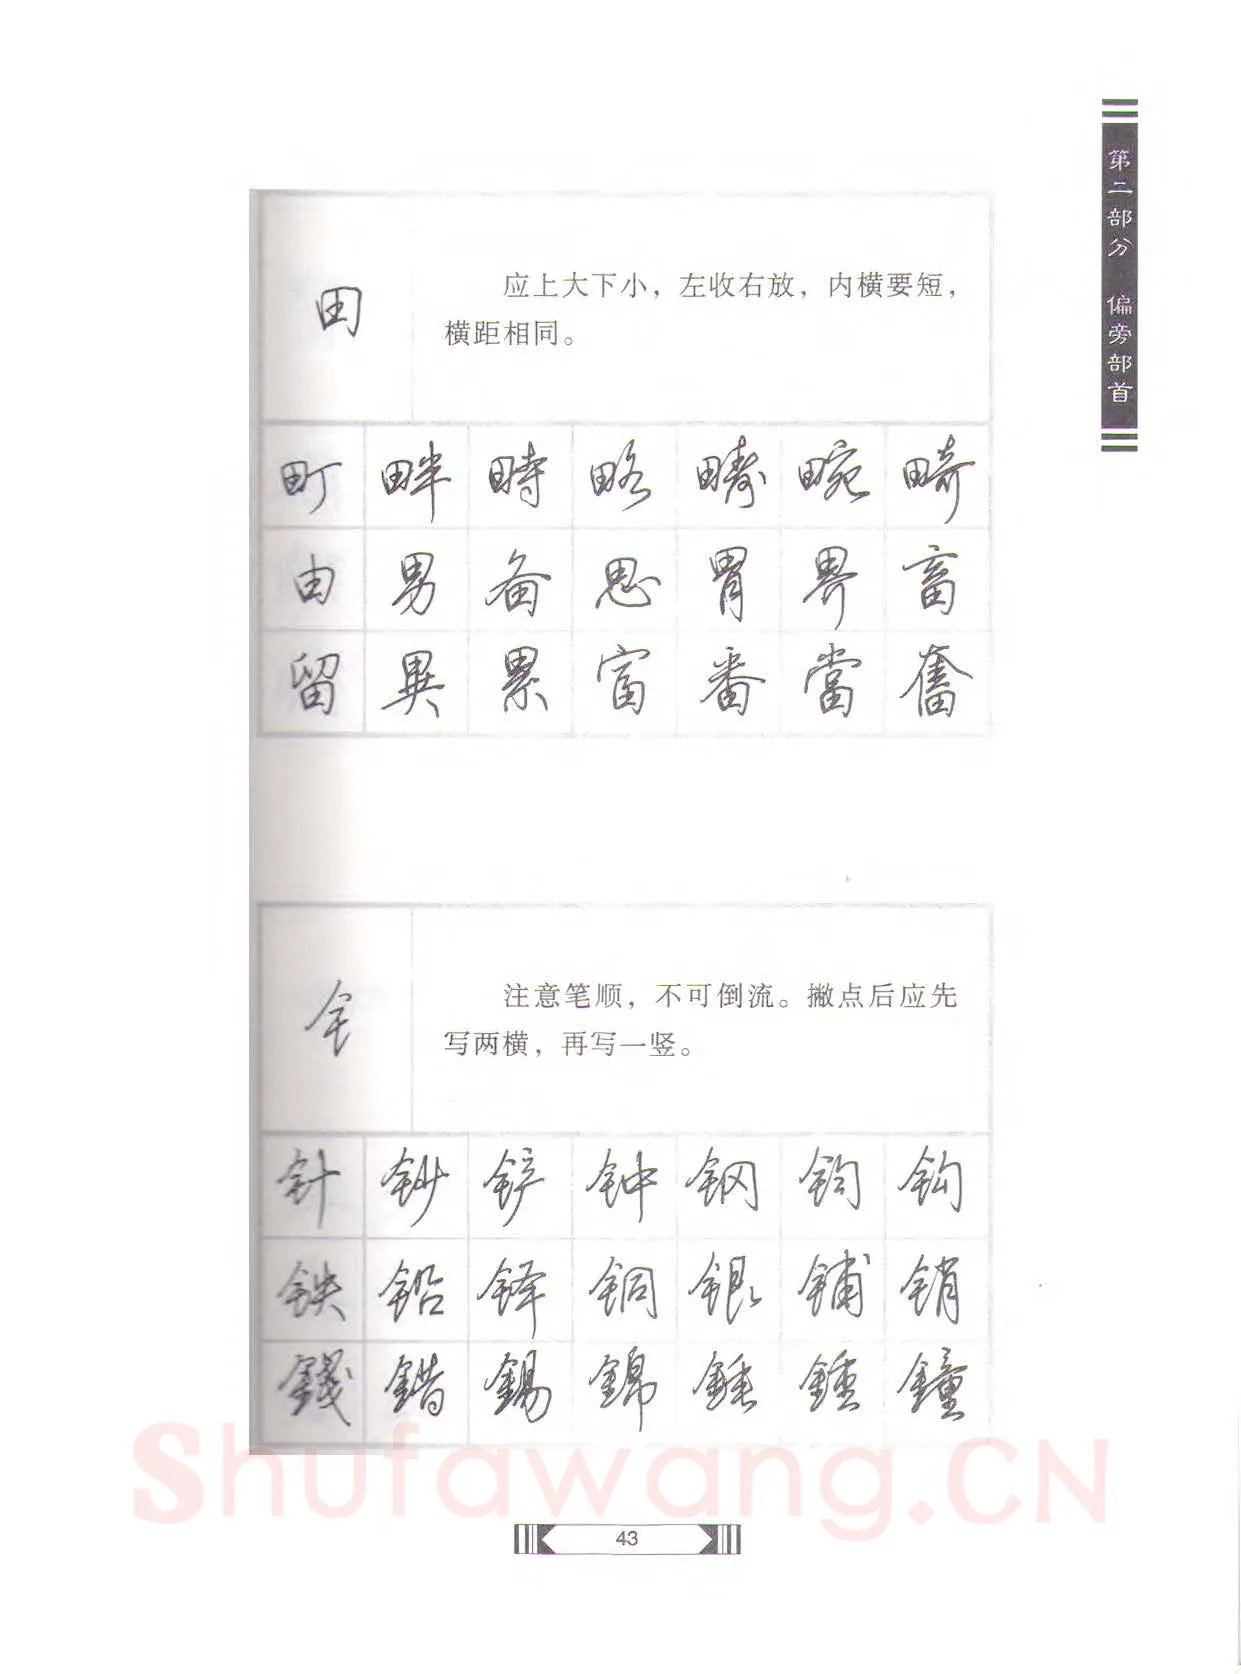 第二部分 偏旁部首
田
应上大下小，左收右放，内横要短，
横距相同。
町 畔 畤 略 疇 畹 畸
由 男 备 思 胃 界 畜
留 異 累 富 番 當 奮
注意笔顺，不可倒流。撇点后应先
写两横，再写一竖。
针 钞 铲 钟 钢 钧 钩
铁 铅 铎 铜 银 铺 销
錢 错 錫 锦 錘 鐘
Shufawang.CN
43